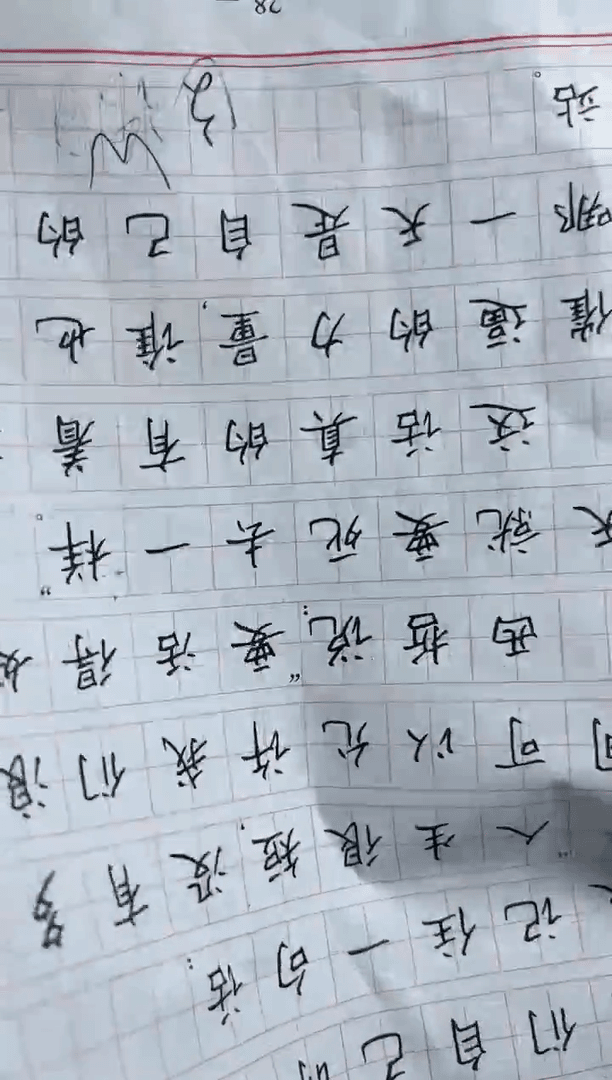 们自己的
记住一句话：
人生很短，没有多
间可以允许我们浪
西哲说：“要活得好
天就要死去一样”。
这话真的有着
催逼的力量，谁也
哪一天是自己的
站。
28